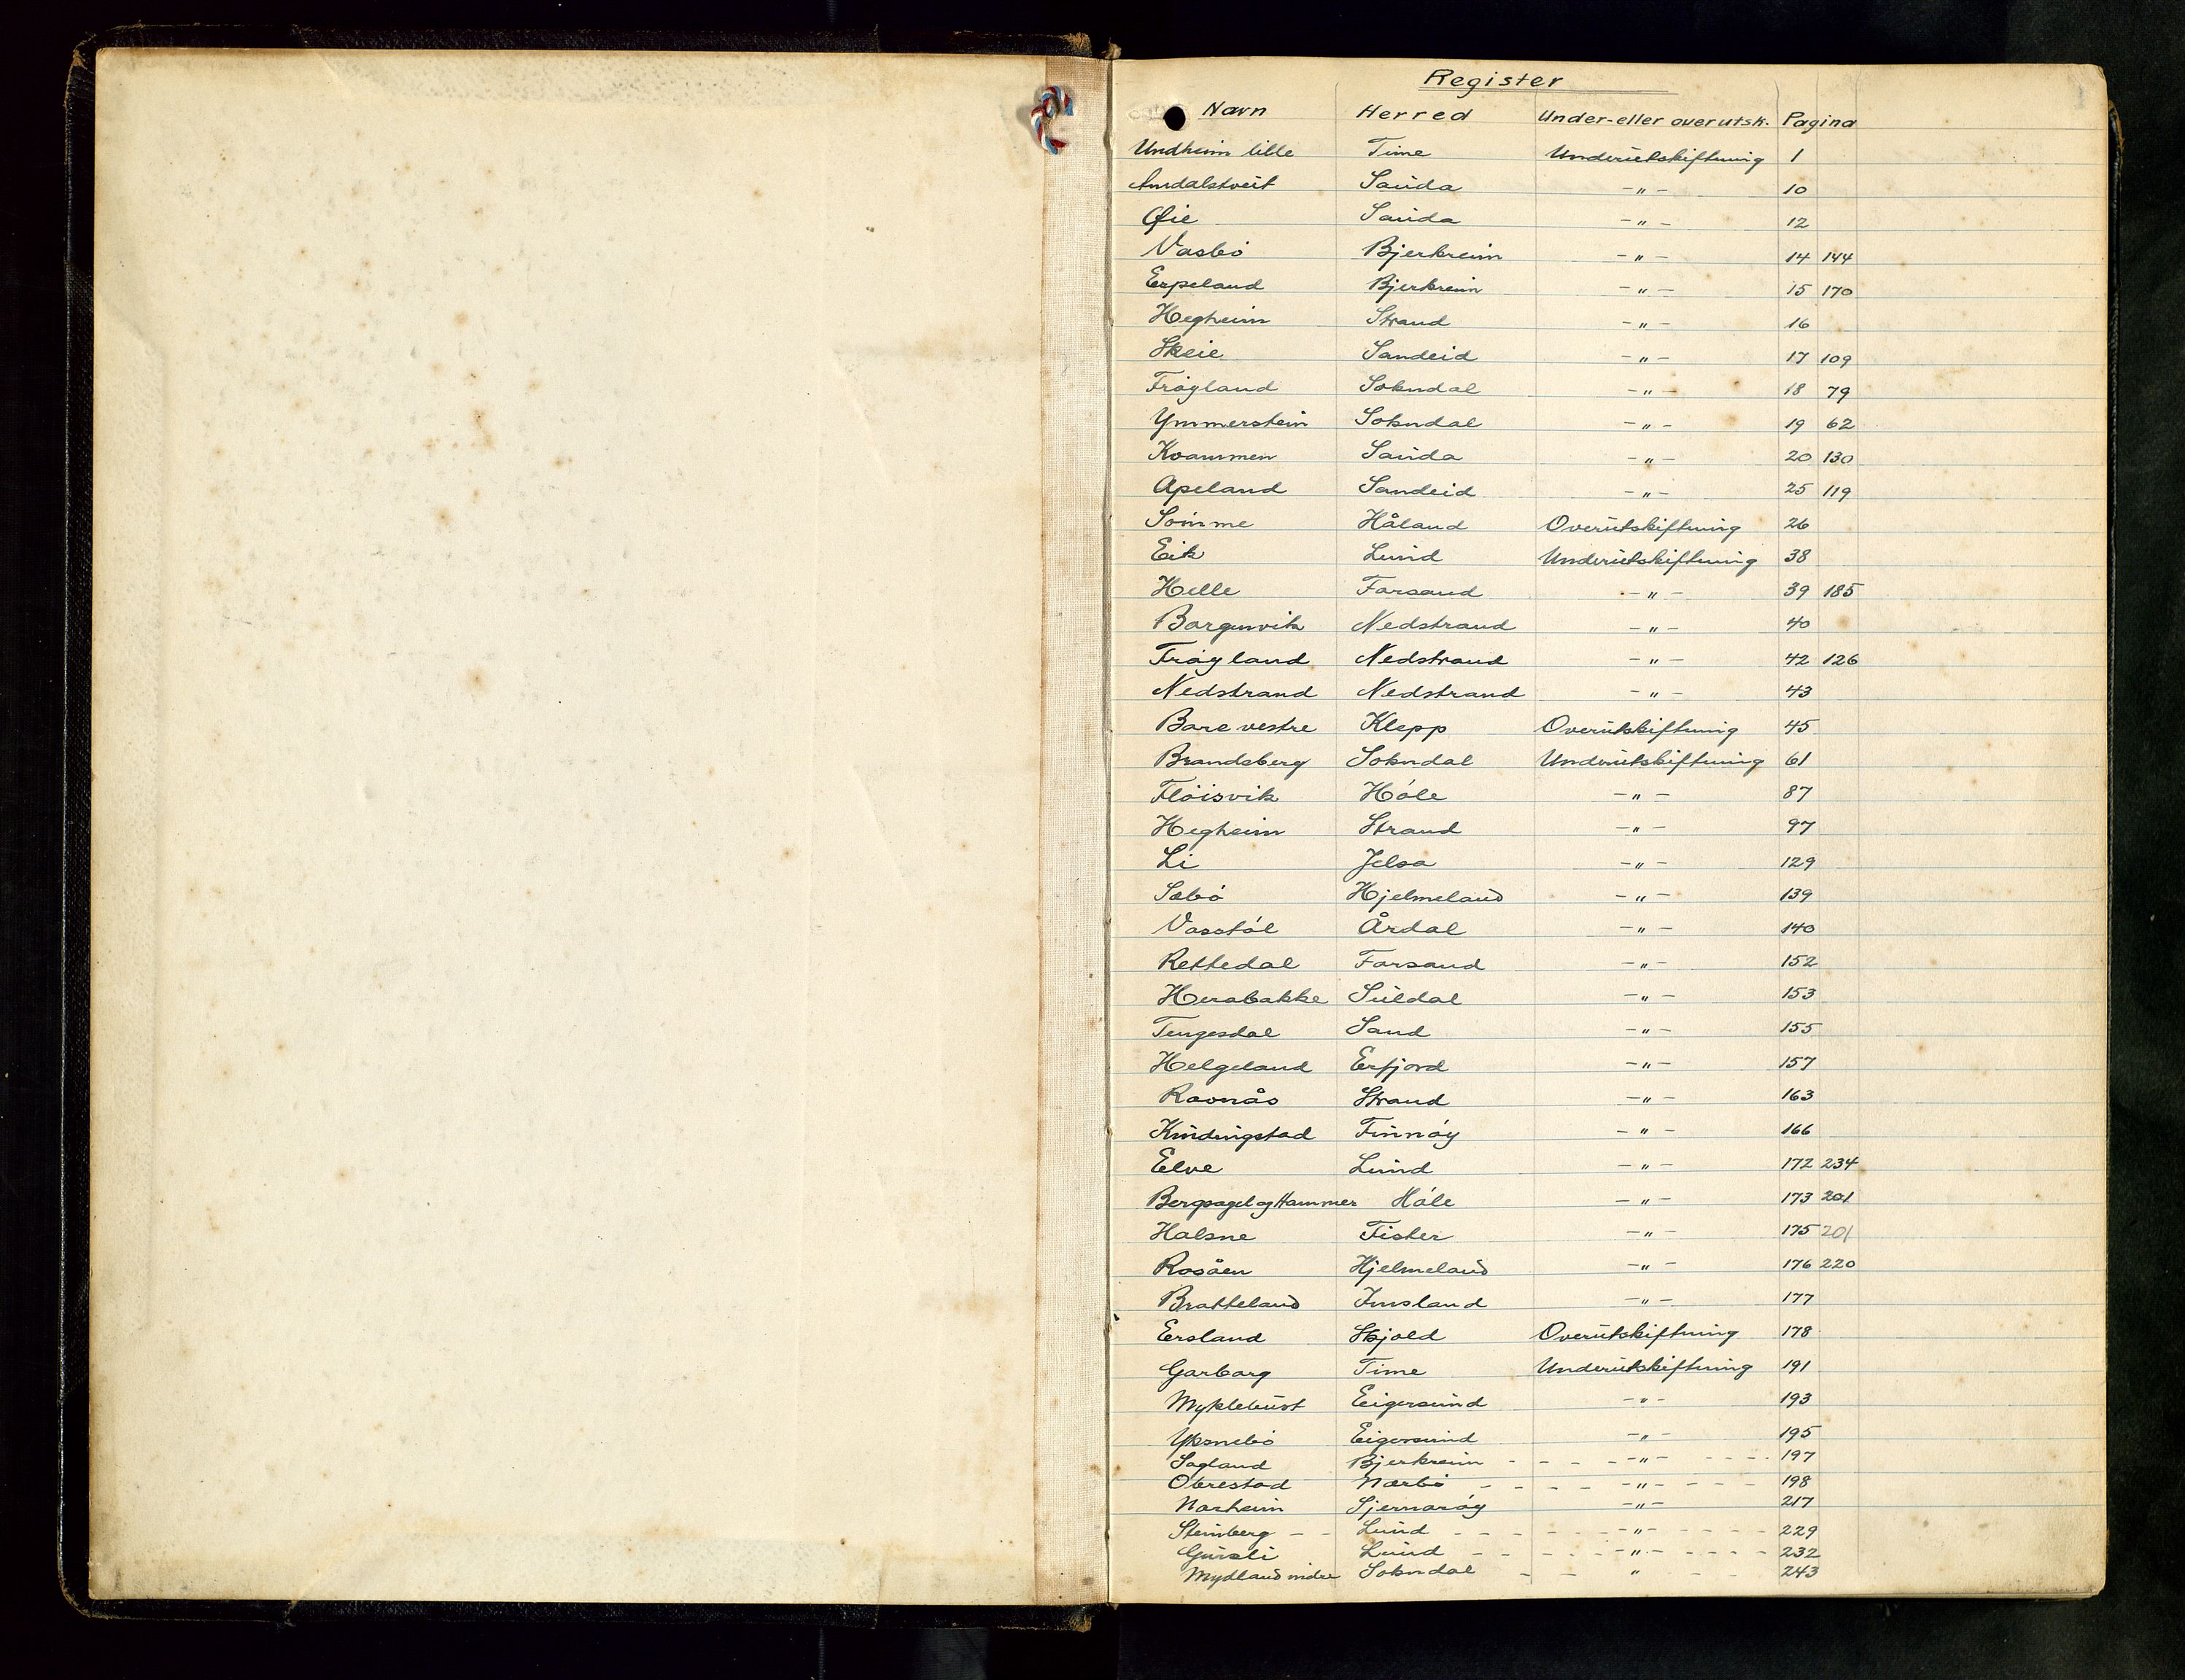 Register
Navn Herred Under-eller overutsk. Pagina
Undheim lille Time Underutskiftning 1
Amdalstveit Sauda -"- 10
Øie Sauda -"- 12
Vasbö Bjerkreim -"- 14 144
Espeland Bjerkreim -"- 15 170
Hegheim Strand -"- 16
Skeie Sandeid -"- 17 109
Fröyland Sokndal -"- 18 79
Ymmerstein Sokndal -"- 19 62
Kvammen Sauda -"- 20 130
Apeland Sandeid -"- 25 119
Sömme Håland Overutskiftning 26
Eik Lund Underutskiftning 38
Helle Forsand -"- 39 185
Borgunvik Nedstrand -"- 40
Fröyland Nedstrand -"- 42 126
Nedstrand Nedstrand -"- 43
Bore vestre Klepp Overutskiftning 45
Brandsberg Sokndal Underutskiftning 61
Flöisvik Höle -"- 87
Hegheim Strand -"- 97
Li Jelsa -"- 129
Sæbö Hjelmeland -"- 139
Vasstöl Årdal -"- 140
Rettedal Forsand -"- 152
Herabakke Suldal -"- 153
Tengesdal Sand -"- 155
Helgeland Erfjord -"- 157
Ravnås Strand -"- 163
Kindingstad Finnöy -"- 166
Eelve Lund -"- 172 234
Bergsagel og Hammer Höle -"- 173 201
Halsne Fister -"- 175 201
Rosåen Hjelmeland -"- 176 220
Bratteland Imsland -"- 177
Eersland Skjold Overutskiftning 178
Garborg Time Underutskiftning 191
Myklebust Eigersund -"- 193
Yksnebö Eigersund -"- 195
Sagland Bjerkreim - - - -"- - - - 197
Obrestad Nærbö - - - -"- - - - 198
Narheim Sjernaröy -"- 217
Steinberg - - Lund - - - -"- - - - 229
Gursli Lund - - - -"- - - - 232
Mydland indre Sokndal - - " - - 243